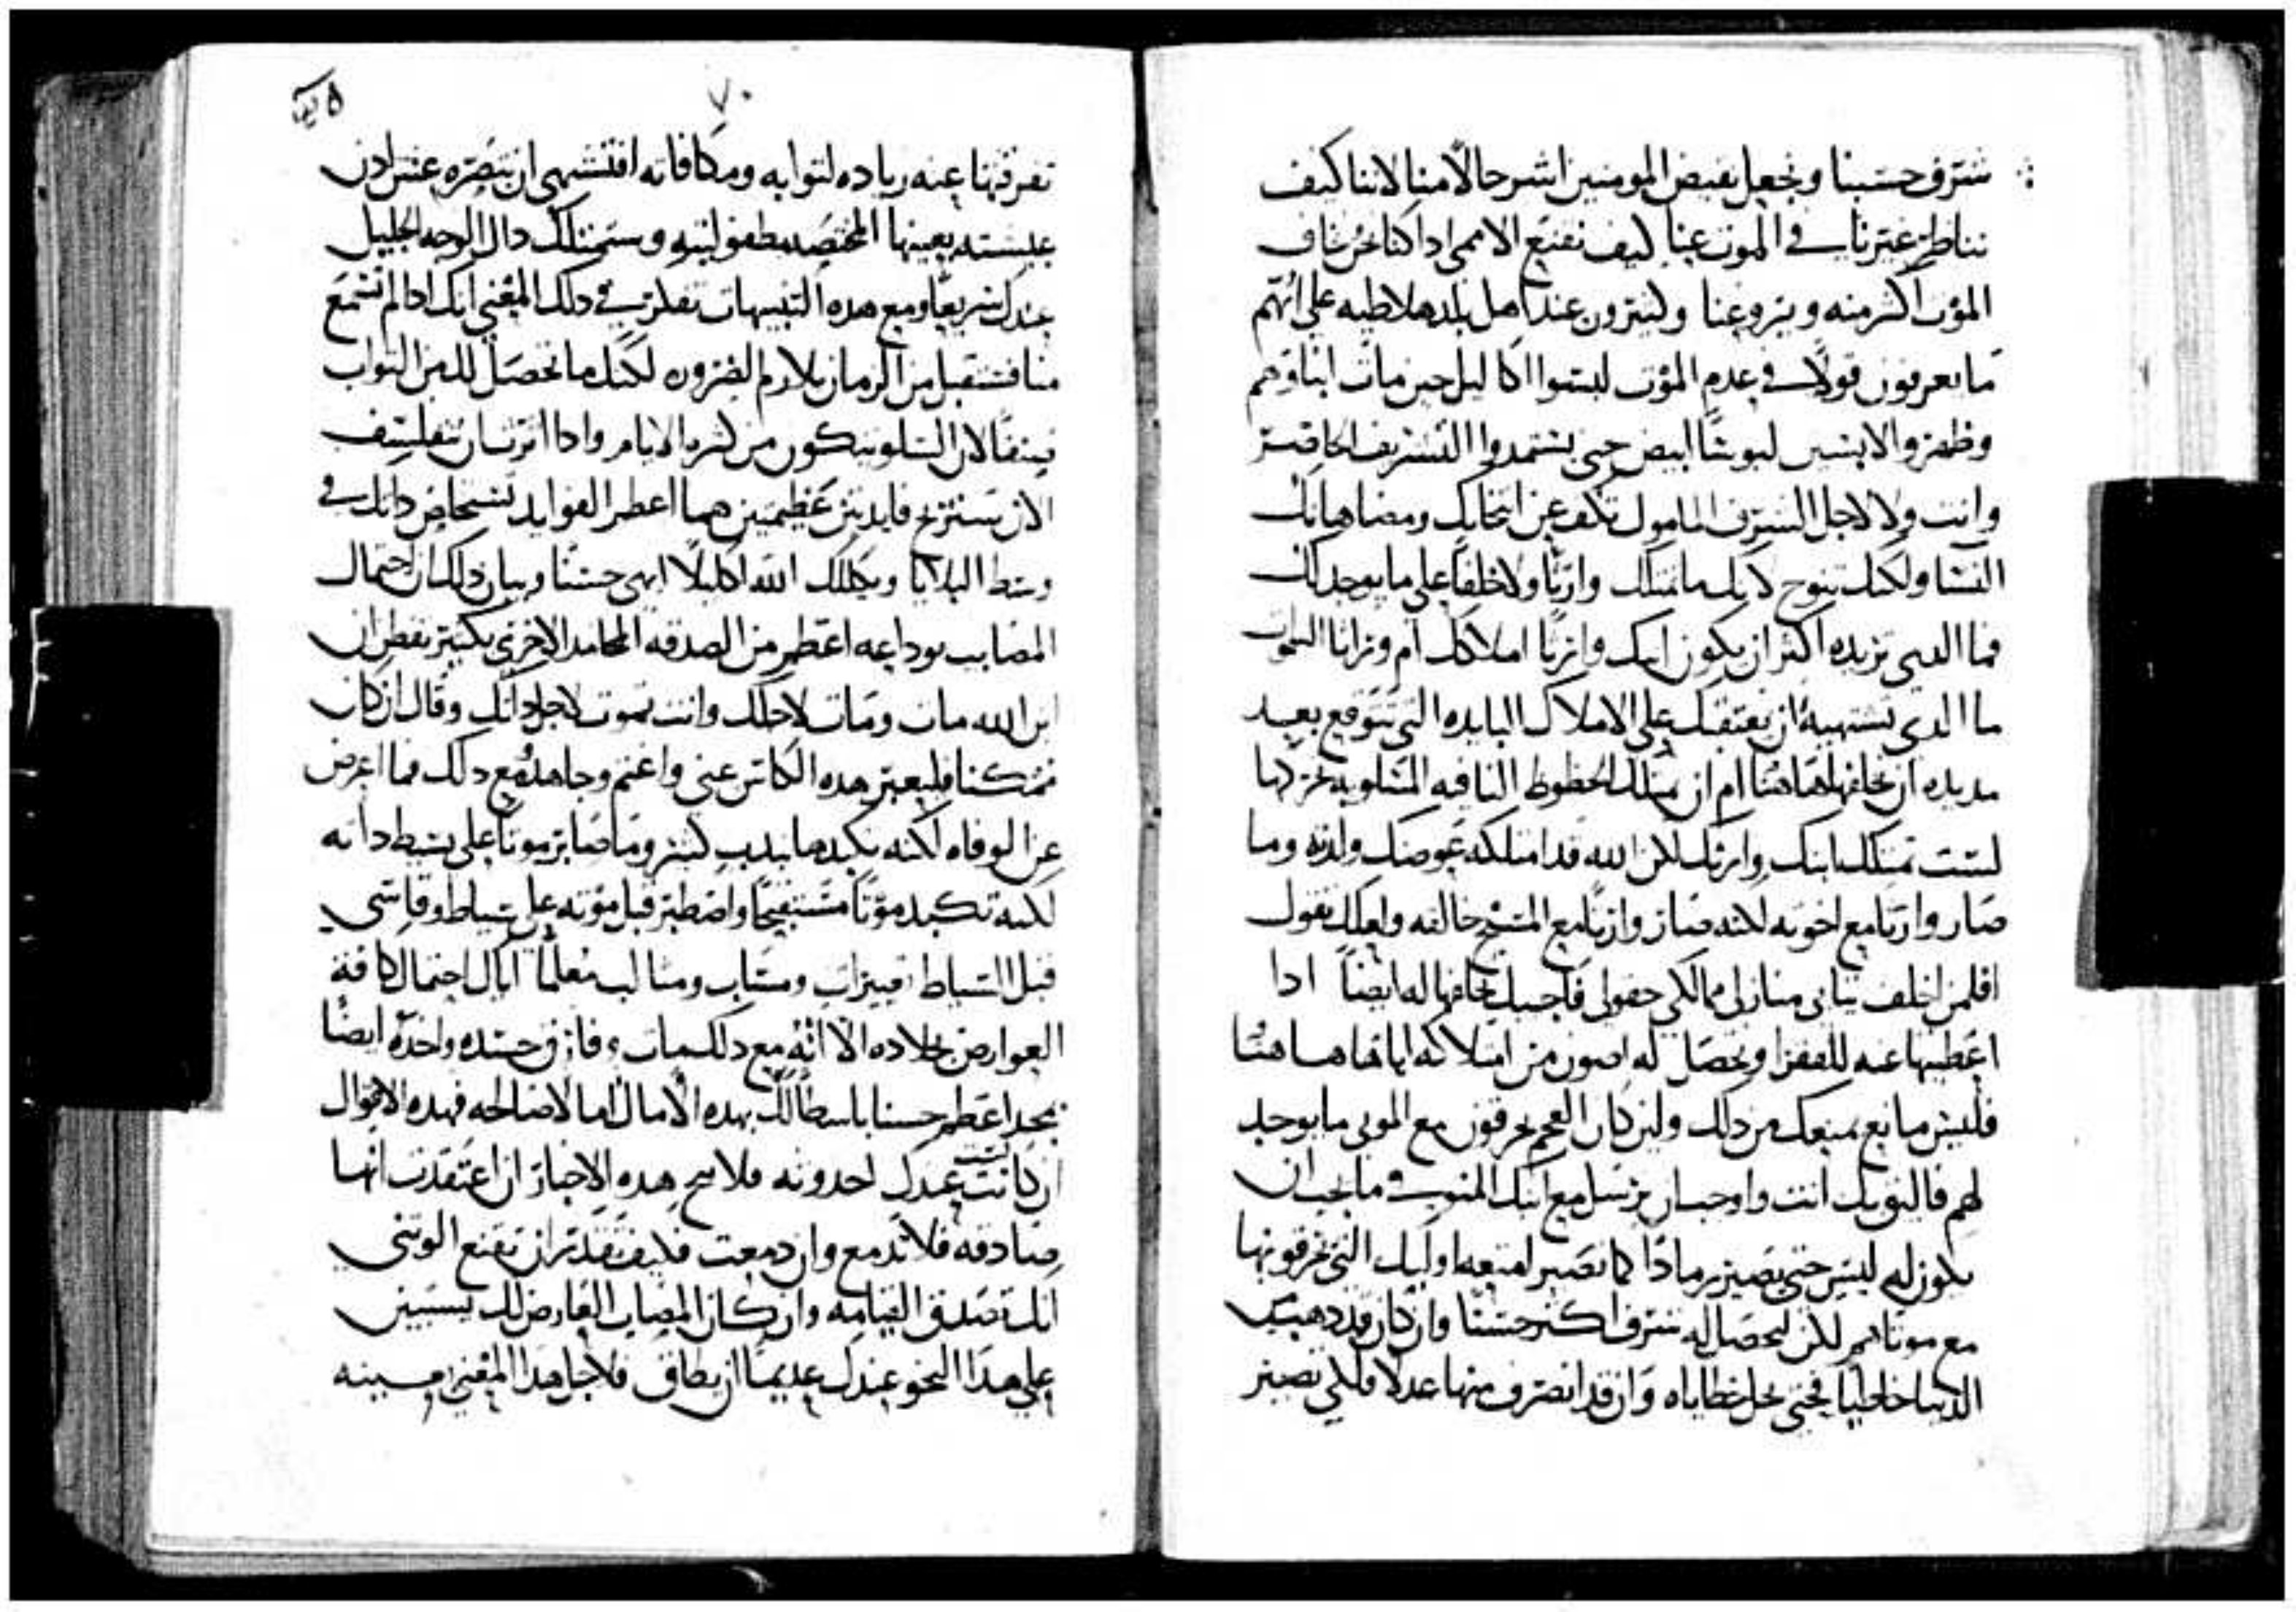 شترف حسبنا ونجعل بعيض المومنين اشر حالًا منا لاننا كيف
نناظر غيرنا في الموت عنا كيف نقنع الامم اذا كنا نحن نخاف
الموت اكثر منه ويروعنا وكثيرون عند اهل بلدهلاطيه على انهم
ما يعرفون قولا في عدم الموت لبسوا اكاليل حين مات ابناوهم
وظهروا لابسين لبوسًا ابيض حتى يستمدوا التشريف الحاضر
وانت ولا لاجل الشرف المامول تكف عن انتحابك ومضاهاتك
النسا ولكنك تنوح لانك ما تملك وارثًا ولا خلفًا على ما يوجد لك
فما الذي تريده اكثر ان يكون ابنك وارثًا املاكك ام وارثا السموات
ما الذي تشتهيه ان يعتقبك على الاملاك البايده التي تتوقع بعد
مديده ان يخلفها هاهنا ام ان يمتلك الحظوظ الباقيه
لست تمتلك ابنك وارثك لكن الله قد امتلكه عوضك وارثه وما
صار وارثا مع اخوته لكنه صار وارثا مع المسيح خالقه ولعلك تقول
افلمن اخلف ثيابي منازلي ممالكي حقولي فاجيبك تخلفها له ايضًا اذا
اعطيتها عنه للفقرا وتحصل له اصون من امتلاكه اياها هاهنا
فليس مانع يمنعك من ذلك ولين كان العجم يحرقون مع الموتى ما يوجد
لهم فاليق بك انت واوجب ان يرسل مع ابنك المتوفى ما يجب ان
يكون له ليس حتى يصير رمادًا كما تصير امتعه اوليك التي يحرقونها
مع موتاهم لكن ليحصل له شرف اكثر حسنًا وان كان قد ذهب من
الدنيا خاطيًا فحتى تحل خطاياه وان قد انصرف منها عدلا فلكي تصير
٧٠
تفرقتها عنه زياده لثوابه ومكافاته افتشتهي ان تبصره عش اذن
عيشته بعينها المختصه وستمتلك ذاك الوجه الجليل
عندك سريعًا ومع هذه التنبيهات تفكر في ذلك المعنى انك اذا لم تسمع
منا فستقبل من الزمان بلازم الضروره لكنك ما تحصل لك من الثواب
لان السلو يتكون من كثرة الايام واذا اثرت ان تتفلسف
الان ستربح فايدتين عظيمتين هما اعظم الفوايد ذاتك في
وسط البلايا ويكللك الله اكليلًا ابهى حسنًا وبيان ذلك ان احتمال
المصايب بوداعه اعظم من الصدقه المحامد الاخرى بكثير تفطن ان
ابن الله مات ومات لاجلك وانت تموت لاجل ذاتك وقال ان كان
ممكنا فليعبر هذه الكاس عني واغتم وجاهد مع ذلك فما اعرض
عن الوفاه لكنه تكبدها بندب كثير وما صابر موتا على بسيط ذاته
لكنه تكبد موتًا مستقبحًا واصطبر قبل موته على سياط وقاسى
قبل السياط تعييرات ومسباب ومثالب معلمًا اياك احتمال كافة
العوارض بجلاده الا انه مع ذلك مات وفارق جسده واخذه ايضًا
بمجد اعظم حسنا باسطا لك بهذه الامال امالا صالحه فهذه الاقوال
ان كانت ليست عندك احدوثه فلا تنح هذه الاخبار ان اعتقدت انها
صادقه فلا تدمع وان دمعت فكيف تقدر ان تقنع الوثني
انك تصدق القيامه وان كان المصاب العارض لك يستبين
على هذا النحو عندك عديمًا ان يطاق فلاجل هذا المعنى